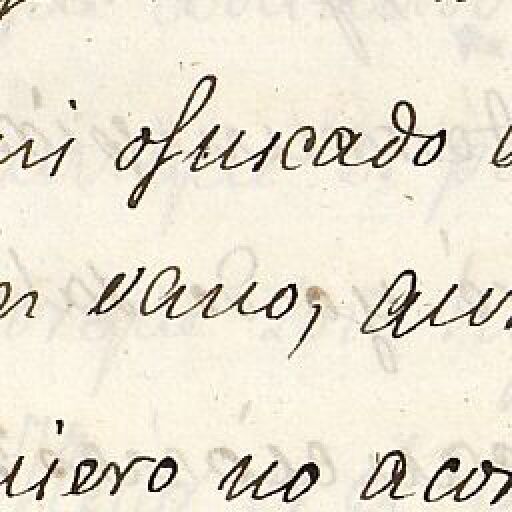 mi ofuscado
vano,
uiero no acor